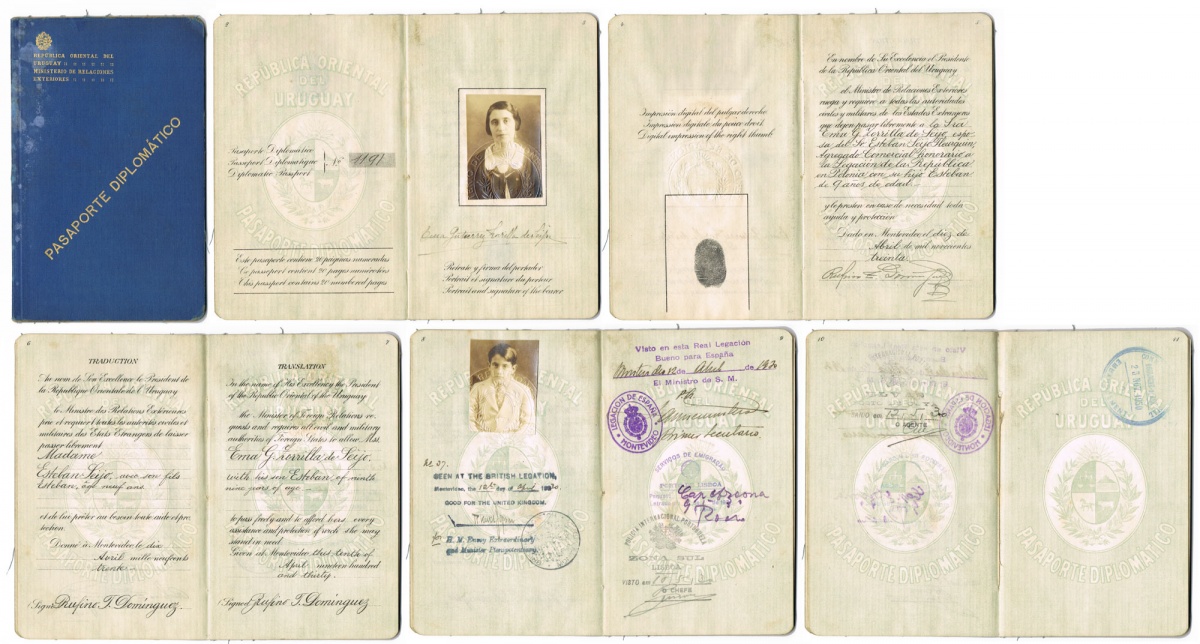 REPUBLICA ORIENTAL DEL
URUGUAY
MINISTERIO DE RELACIONES
EXTERIORES
PASAPORTE DIPLOMÁTICO
2
REPUBLICA ORIENTAL
DEL
URUGUAY
Pasaporte Diplomático
Passeport Diplomatique Nº 1191
Diplomatic Passport
PASAPORTE DIPLOMATICO
Este pasaporte contiene 20 páginas numeradas
Ce passeport contient 20 pages numérotées
This passport contains 20 numbered pages
3
Retrato y firma del portador
Portrait et signature du porteur
Portrait and signature of the bearer
4
Impresión digital del pulgar derecho
Impression digitale du pouce droit
Digital impression of the right thumb
5
En nombre de Su Excelencia el Presidente
de la República Oriental del Uruguay
el Ministro de Relaciones Exteriores
ruega y requiere a todas las autoridades
civiles y militares de los Estados Extranjeros
que dejen pasar libremente a la Sra.
Ema G. Zorrilla de Seijo, espo-
sa del Sr. Esteban Seijo
Agregado Comercial honorario a
la Legación de la República
en Polonia con su hijo Esteban
de 9 años de edad
y le presten en caso de necesidad toda
ayuda y protección
Dado en Montevideo el diez de
Abril de mil novecientos
treinta
6
TRADUCTION
Au nom de Son Excellence le Président de
la République Orientale de l'Uruguay
le Ministre des Relations Extérieures
prie et requiert toutes les autorités civiles et
militaires des Etats Etrangers de laisser
passer librement
Madame
Esteban Seijo, avec son fils
Esteban, âgé neuf ans
et de lui prêter au besoin toute aide et pro-
tection.
Donné à Montevideo le dix
Avril mille neufcents
trente
Signé Rufino T. Dominguez.
7
TRANSLATION
In the name of His Excellency the President
of the Republic Oriental of the Uruguay
the Minister of Foreign Relations re-
quests and requires all civil and military
authorities of Foreign States to allow Mrs.
Ema G. Zorrilla de Seijo,
with his son Esteban, of ninth
nine years of age
to pass freely and to afford hers every
assistance and protection of wich she may
stand in need.
Given at Montevideo this tenth of
April nineteen hundred
and thirty.
Signed Rufino T. Dominguez
8
SEEN AT THE BRITISH LEGATION,
Montevideo, the 12th day of April 1930.
GOOD FOR THE UNITED KINGDOM.
for H. M. Envoy Extraordinary
and Minister Plenipotentiary.
9
Visto en esta Real Legación
Bueno para España
Montevideo 12 de Abril de 1930
El Ministro de S. M.
LEGACION DE ESPAÑA
MONTEVIDEO
SERVIÇOS DE EMIGRAÇÃO
ZONA SUL
LISBOA
VISTO em
O CHEFE
10
O AGENTE
REPUBLICA ORIENTAL
DEL
URUGUAY
PASAPORTE DIPLOMATICO
11